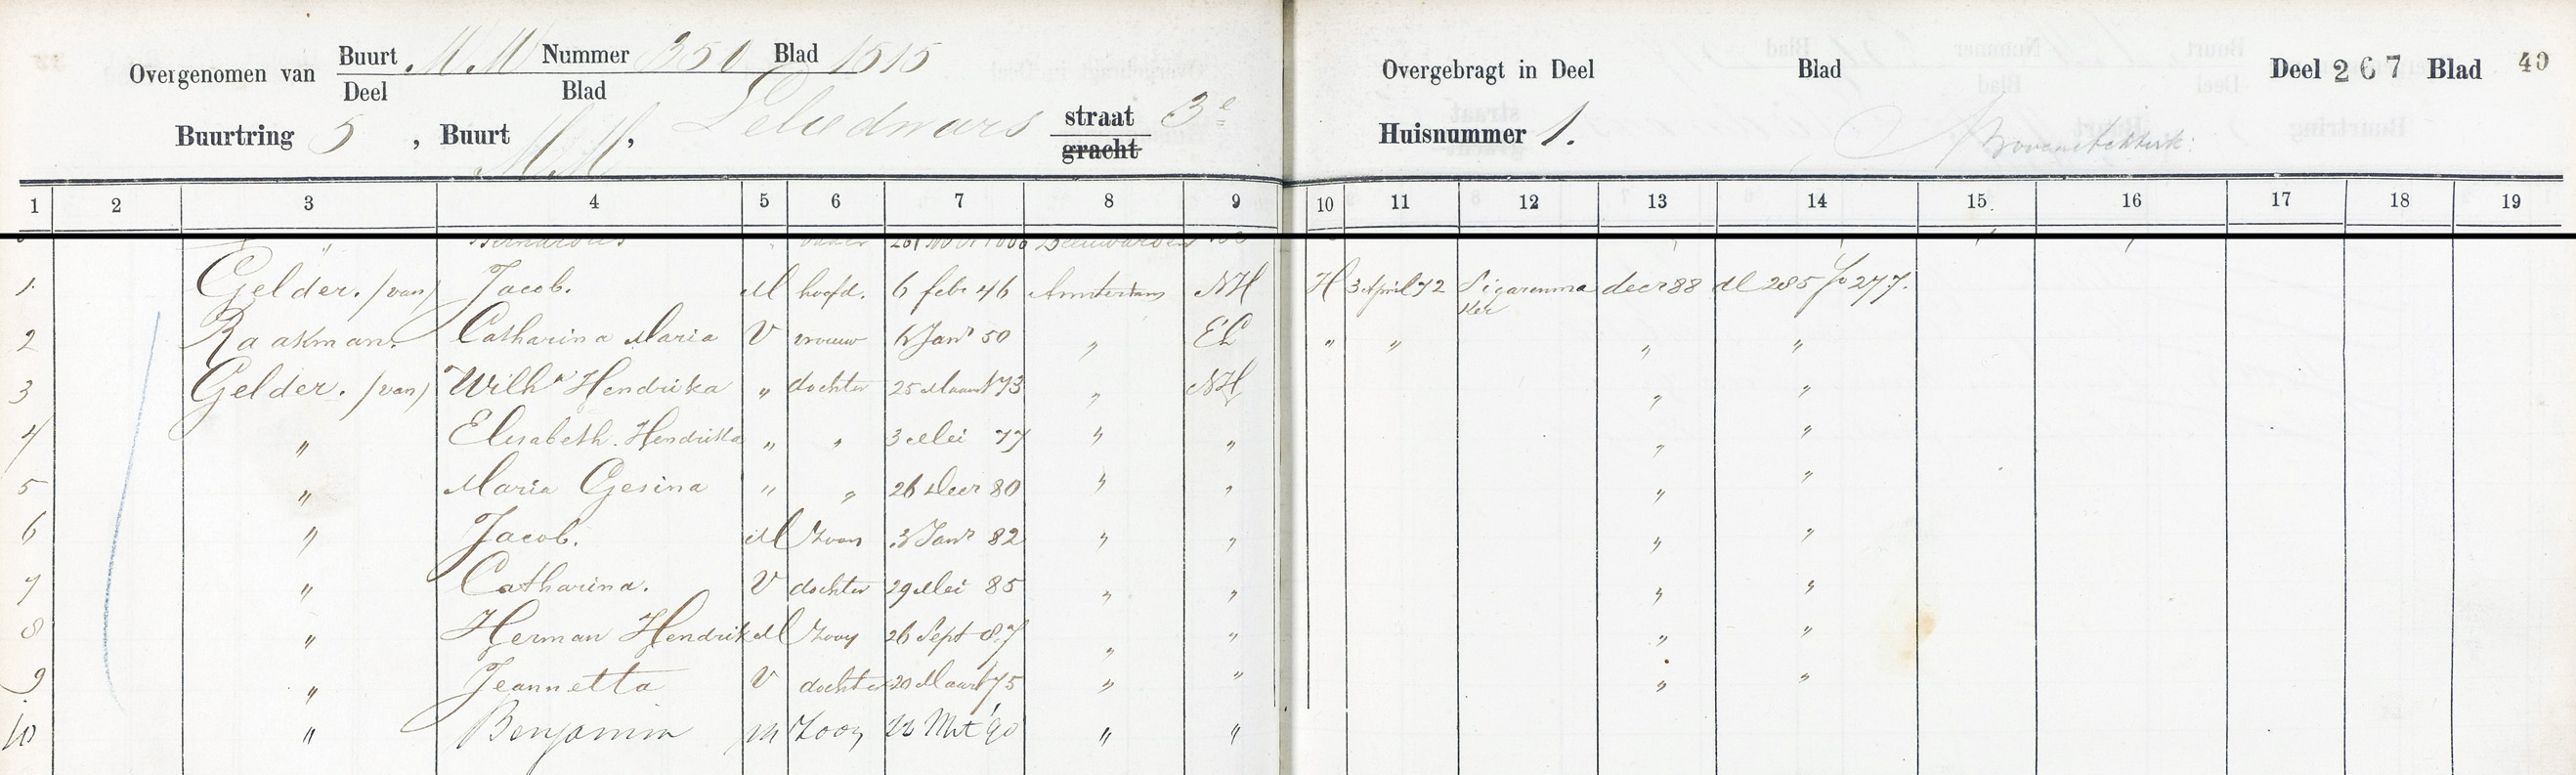 Overgenomen van Buurt M.M Nummer 350 Blad 1515
Deel Blad
Buurtring 5, Buurt MM, Leliedwars straat 3e
gracht
Overgebragt in Deel Blad Deel 267 Blad 40
Huisnummer 1.
1 2 3 4 5 6 7 8 9 10 11 12 13 14 15 16 17 18 19
1. Gelder. (van) Jacob. M hoofd. 6 febr 46 Amsterdam NH H 3 April 72 Sigarenma decr 88 dl 285 fo 277.
ker
2 Raakman. Catharina Maria V vrouw 6 Janr 50 " EL " " " "
3 Gelder. (van) Wilha Hendrika " dochter 25 Maart 73 " NH " "
4 " Elisabeth. Hendrika " " 3 Mei 77 " " " "
5 " Maria Gesina " " 26 Decr 80 " " " "
6 " Jacob. M Zoon 3 Janr 82 " " " "
7 " Catharina. V dochter 29 Mei 85 " " " "
8 " Herman Hendrik M Zoon 26 Sept 87 " " " "
9 " Jeannetta V dochter 20 Maart 75 " " " "
10 " Benjamin M Zoon 22 Mrt 90 " "